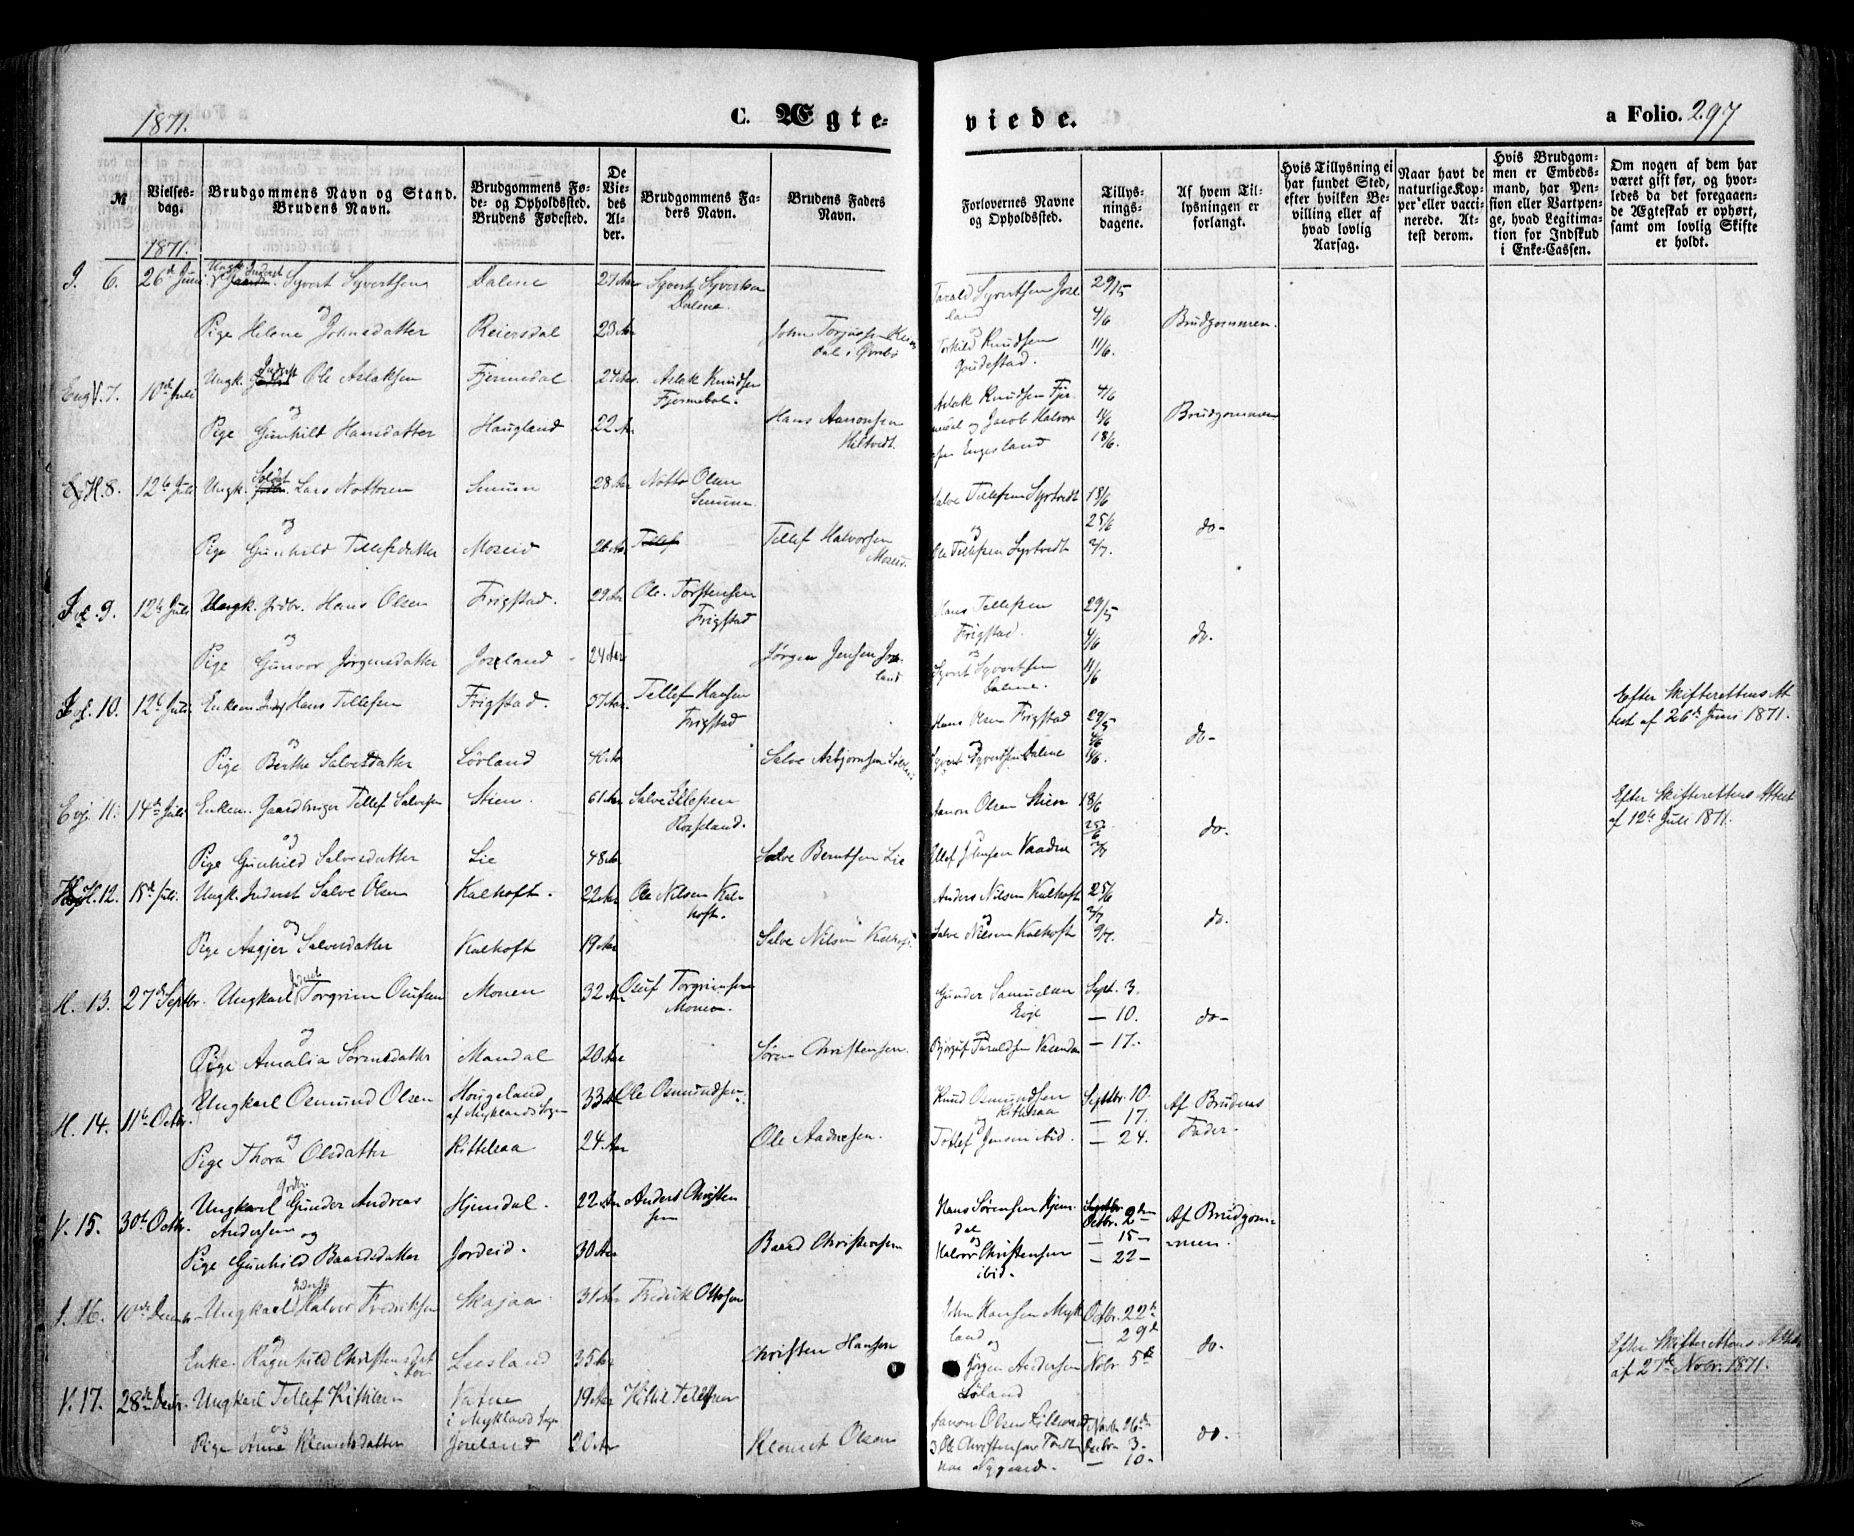 1871.
C. Ægte-
viede.
a Folio. 297
№
Vielses-
dag.
Brudgommens Navn og Stand.
Brudens Navn.
Brudgommens Fø-
de- og Opholdssted.
Brudens Fødested.
De
Vie-
des
Al-
der.
Brudgommens Fa-
ders Navn.
Brudens Faders
Navn.
Forlovernes Navne
og Opholdssted.
Tillys-
nings-
dagene.
Af hvem Til-
lysningen er
forlangt.
Hvis Tillysning ei
har fundet Sted,
efter hvilken Be-
villing eller af
hvad lovlig
Aarsag.
Naar havt de
naturlige Kop-
per eller vacci-
nerede. At-
test derom.
Hvis Brudgom-
men er Embeds-
mand, har Pen-
sion eller Vartpen-
ge, hvad Legitima-
tion for Indskud
i Enke-Cassen.
Om nogen af dem har
været gift før, og hvor-
ledes da det foregaaen-
de Ægteskab er ophørt,
samt om lovlig Skifte
er holdt.
1871.
I. 6. 26d Juni Ungk. Inderst Syvert Syvertsen Dalene 27 Aar Syvert Syvertsen
Dalene.
Tarald Syvertsen Jose-
land 29/5
og
Pige Helene Johnsdatter Reiersdal 23 Aar John Torjussen Reiers-
dal i
4/6 Brudgommen.
Torkild Knudsen 11/6.
7. 10de Juli Ungk. Inderst Ole Aslaksen Fjermedal 24 Aar Aslak Knudsen
Fjermedal.
Aslak Knudsen Fjer-
medal og Jacob Halvor-
sen Engesland
4/6
11/6
18/6.
og
Pige Gunhild Hansdatter Haugland 22 Aar Hans Aanonsen
Brudgommen
H. 8. 12te Juli Ungk. Lars Nottosen Senum 28 Aar Notto Olsen
Senum
Salve Tellefsen Syrtvedt 18/6
og 25/6
do-
Pige Gunhild Tellefsdatter Moseid 26 Aar Tellef Tellef Halvorsen
Moseid.
Ole Tellefsen Syrtvedt 2/7.
9. 12te Juli Ungk. Grdbr. Hans Olsen Frigstad. 29 Aar Ole Torstensen
Frigstad
Hans Tellefsen
Frigstad. 29/5
4/6 do.
og
Pige Gunvor Jørgensdatter Joseland 24 Aar Jørgen Jensen Jose-
land
og
Syvert Syvertsen
Dalene. 11/6
10. 12te Juli Enkem. Hans Tellefsen Frigstad. 37 Aar Tellef Hansen
Frigstad
Hans Olsen Frigstad 29/5
og 4/6
do-
Efter Skifterettens At-
test af 26de Juni 1871.
og
Pige Berthe Salvesdatter Lørland 40 Aar Salve Asbjørnsen
Syvert Syvertsen Dalene 11/6.
Evj. 11. 14de Juli Enkem. Gaardbruger Tellef Salvesen Stien 61 Aar Salve Tellefsen
Rosseland.
Aanon Olsen Stien 18/6
25/6 do.
Efter Skifterettens Attest
af 12te Juli 1871.
og
Pige Gunhild Salvesdatter Lie 48 Aar Salve Berntsen Lie
2/7
H. 12. 15de Juli. Ungk. Inderst Salve Olsen Kalhoft. 22 Aar Ole Nilsen Kal-
hoft.
Anders Nilsen Kalhoft 25/6
og 2/7 do.
og
Pige Asgjer Salvesdatter Kalhoft 19 Aar Salve Nilsen Kalhoft
Salve Nilsen Kalhoft 9/7.
H. 13. 27de Septbr. Ungkarl Torgrim Olufsen Monen 32 Aar Oluf Torgrimsen
Monen.
Gunder Samuelsen Sept. 3.
— 10. do-
og
Pige Amalia Sørensdatter Mandal 20 Aar Søren Christensen.
Taraldsen — 17.
H. 14. 11te Octbr. Ungkarl Osmund Olsen Hougeland
af Myklands Sogn 33 Aar Ole Osmundsen.
Knud Osmundsen
Kittelsaa
Septbr. 10.
— 17.
Af Brudens
Fader.
og
Pige Thora Olsdatter Kittelsaa 24 Aar Ole Aadnesen.
Tellef Jensen ibid. — 24.
V. 15. 30te Octbr. Ungkarl Grdbr. Gunder Andreas
Andersen Hjemdal. 22 Aar Anders Christen-
sen
Hans Sørensen Hjem-
dal
Octbr. 2den
— 15-
Af Brudgom-
men.
og
Pige Gunhild Baardsdatter Jordeid. 30 Aar Baard Christensen
og
Halvor Christensen
ibid. — 22-
I. 16. 10de Decemb. Ungkarl Inderst Halvor Fredriksen Skajaa 31 Aar Fredrik Ottosen
John Hansen Myk-
land
Octbr. 22de
— 29d
og
Enke. Ragnhild Christensdat-
ter Leesland 35 Aar Christen Hansen
og
Jørgen Andersen
Løland Novbr 5te
do.
Efter Skifterettens Attest
af 27de Novbr. 1871.
V. 17. 28de Decbr. Ungkarl Tellef Kittelsen Vatne
i Mykland Sogn 19 Aar Kittil Tellefsen
Aanon Olsen Novbr 26de
og
Pige Anne Klemetsdatter Joreland 20 Aar Klemet Olsen
Ole Christensen
Decbr. 3. do.
— 10.